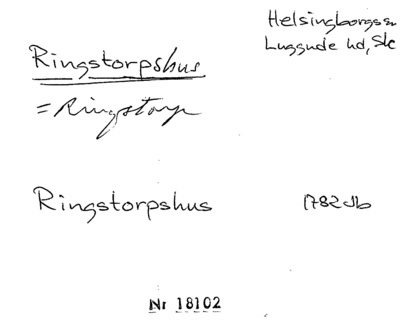 Helsingborgs sn
Luggude hd, Sk
Ringstorpshus
= Ringstorp
Ringstorpshus
1782 Jb
Nr 18102